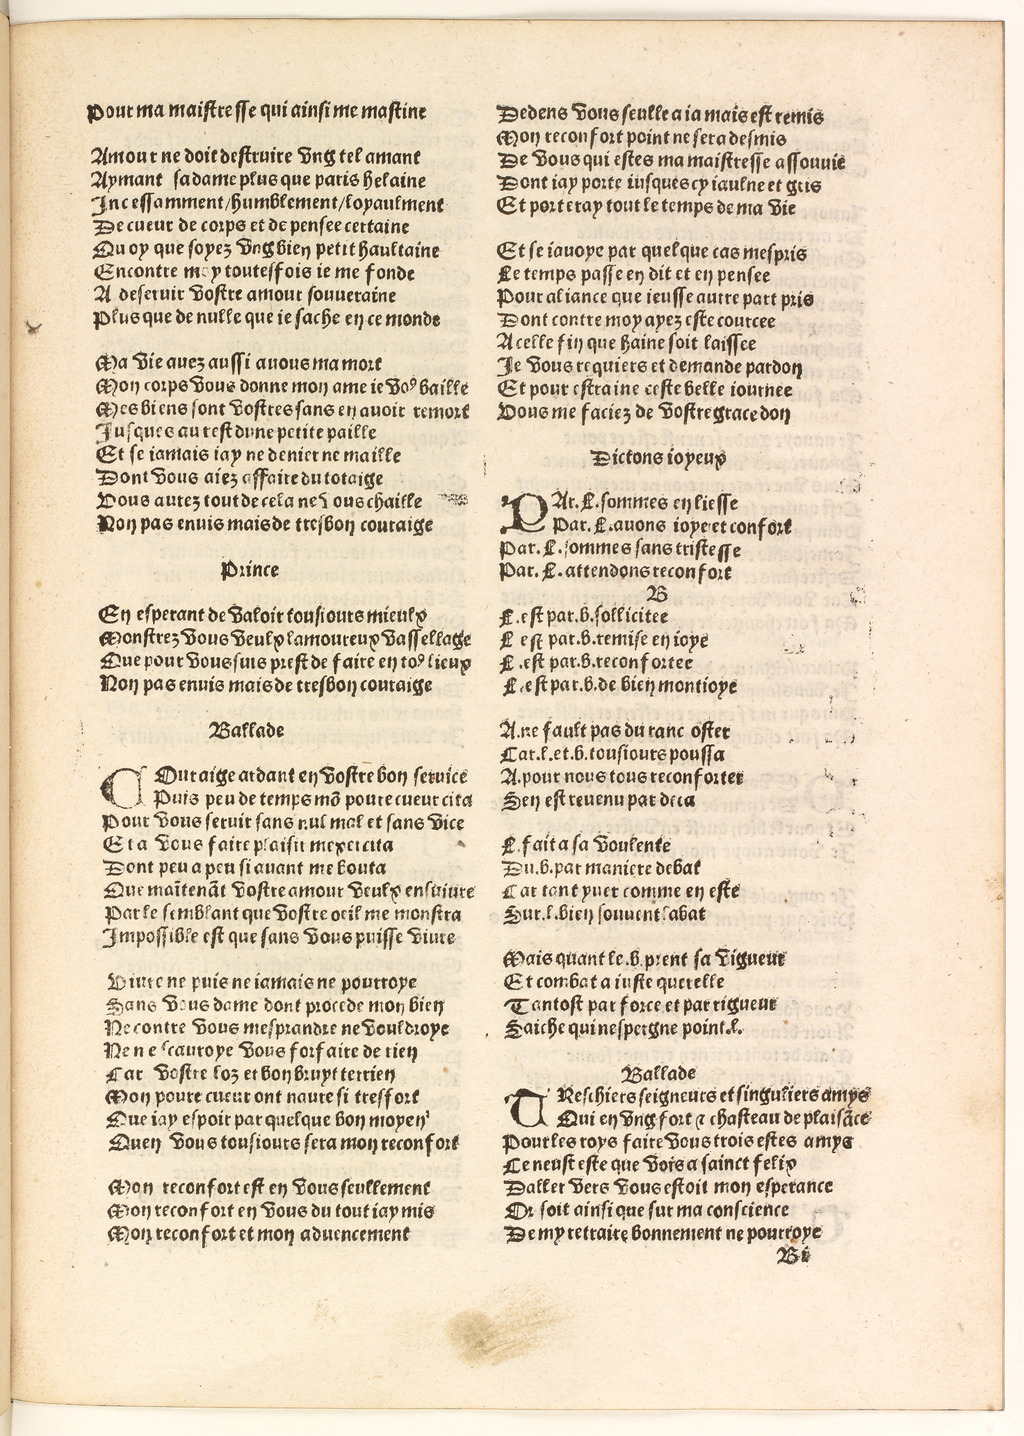 Pour ma maistresse qui ainsi me mastine
Amour ne doit destruire vng tel amant
Aymant sa dame plus que paris helaine
Incessamment/humblement/loyaulment
De cueur de corps et de pensee certaine
Quoy que soyez vng bien petit haultaine
Encontre moy toutesfois ie me fonde
A deseruir vostre amour souueraine
Plus que de nulle que ie sache en ce monde
Ma vie auez aussi auous ma mort
Mon corps vous donne mon ame ie voꝰ baille
Mes biens sont vostres sans en auoir remort
Jusques au rest dune petite paille
Et se iamais iay ne denier ne maille
Dont vous aiez affaire du totaige
Vous aurez tout de cela ne vous chaille
Non pas enuis mais de tresbon couraige
Prince
En esperant de valoir tousiours mieulx
Monstrez vous veulx lamoureux vassellage
Que pour vous suis prest de faire en toꝰ lieux
Non pas enuis mais de tresbon couraige
Ballade
COuraige ardant en vostre bon seruice
Puis peu de temps mõ poure cueur cita
Pour vous seruir sans nul mal et sans vice
Et a vous faire plaisir mexercita
Dont peu a peu si auant me bouta
Que maĩtenãt vostre amour veulx ensuiure
Par le semblant que vostre oeil me monstra
Impossible est que sans vous puisse viure
Viure ne puis ne iamais ne pourroye
Sans vous dame dont procede mon bien
Ne contre vous mesprandre ne vouldroye
Ne ne scauroye vous forfaire de rien
Car vostre loz et bon bruyt terrien
Mon poure cueur ont naure si tresfort
Que iay espoir par quelque bon moyen
Quen vous tousiours sera mon reconfort
Mon reconfort est en vous seullement
Mon reconfort en vous du tout iay mis
Mon reconfort et mon aduencement
Dedens vous seulle a iamais est remis
Mon reconfort point ne sera desmis
De vous qui estes ma maistresse assouuie
Dont iay porte iusques cy iaulne et gris
Et porteray tout le temps de ma vie
Et se iauoye par quelque cas mespris
Le temps passe en dit et en pensee
Pour aliance que ieusse autre part pris
Dont contre moy ayez este courcee
A celle fin que haine soit laissee
Je vous requiers et demande pardon
Et pour estraine ceste belle iournee
Vous me faciez de vostre grace don
Dictons ioyeux
PAr. L. sommes en liesse
Par. L. auons ioye et confort
Par. L. sommes sans tristesse
Par. L. attendons reconfort
B
L. est par. b. sollicitee
L est par. b. remise en ioye
L. est par. b. reconfortee
L. est par. b. de bien montioye
A. ne fault pas du ranc oster
Car. l. et. b. tousiours poussa
A. pour nous tous reconforter
Sen est reuenu par deca
L. fait a sa voulente
Du. b. par maniere debat
Car tant yuer comme en este
Sur. l. bien souuent sabat
Mais quant le. b. prent sa vigueur
Et combat a iuste querelle
Tantost par force et par rigueur
Saiche qui nespergne point. l.
Ballade
TReschiers seigneurs et singuliers amys
Qui en vng fort ⁊ chasteau de plaisãce
Pour les roys faire vous trois estes amys
Ce neust este que vois a sainct felix
Daller vers vous estoit mon esperance
Or soit ainsi que sur ma conscience
De my retraire bonnement ne pourroye
Bi